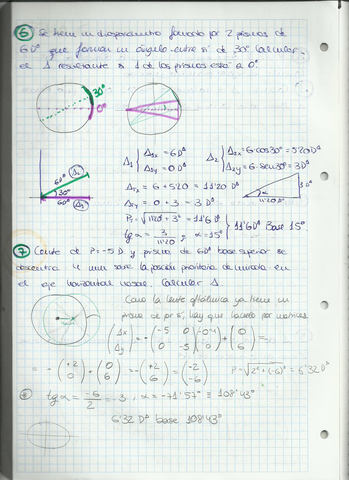 ⑥ Se tiene un diasporámetro formado por 2 prismas de
6D^Δ que forman un ángulo entre sí de 30° Calcular
el Δ resultante si 1 de los prismas está a 0°
30°
0°
6D^Δ (Δ₂)
30°
6D^Δ (Δ₁)
Δ₁ { Δ₁x = 6D^Δ
Δ₁y = 0D^Δ
Δ₂ { Δ₂x = 6·cos30° = 5'20D^Δ
Δ₂y = 6·sen30° = 3D^Δ
Δrx = 6 + 5'20 = 11'20 D^Δ
Δry = 0 + 3 = 3 D^Δ
Pr = √11'20² + 3² = 11'6 D^Δ
tg α = 3/11'20 ; α = 15°
11'6D^Δ Base 15°
α
3D^Δ
11'20 D^Δ
⑦ Lente de P = -5D y prisma de 6D^Δ base superior se
descentra 4 mm sobre la posición prioritaria de mirada en
el eje horizontal nasal. Calcular Δ
Como la lente oftálmica ya tiene un
prisma de por sí, hay que hacerlo por matrices.
(Δx Δy) = - (-5 0 0 -5) (-0'4 0) + (0 6) =
= - (+2 0) + (0 6) = (-2 -6)
P = √2² + (-6)² = 6'32 D^Δ
tg α = -6/2 = -3 , α = -71'57° ≡ 108'43°
6'32 D^Δ base 108'43°